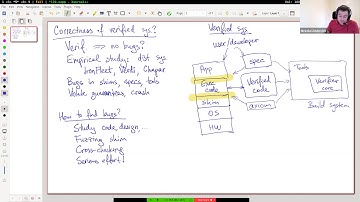 Correctness of verified sys.?
Verif => no bugs?
Empirical study: dist sys
IronFleet, Verdi, Chapar
Bugs in shims, specs, tools
Violate guarantees, crash
How to find bugs?
Study code, design ...
Fuzzing shim
Cross-checking
Serious effort!
Verified sys
user/developer
App
spec
Exec code
Verified code
shim
axiom
OS
HW
Tools
Verifier core
Build system